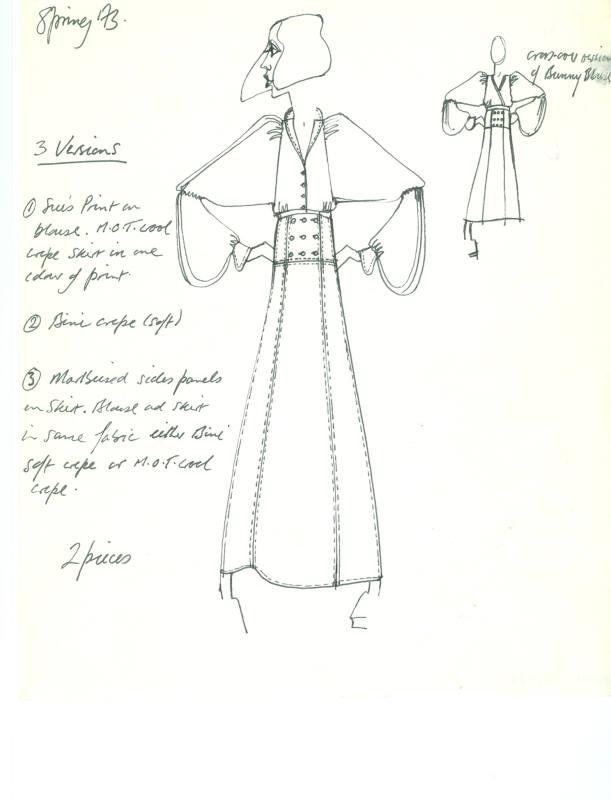 Spring 73.
cross-over version
of Bunny Blouse
3 Versions
① Sue's Print on
blouse. M.O.T. wool
crepe skirt in one
colour of print.
② Bini crepe (soft)
③ side panels
on skirt. Blouse and skirt
in same fabric either Bini
soft crepe or M.O.T. wool
crepe.
2 pieces